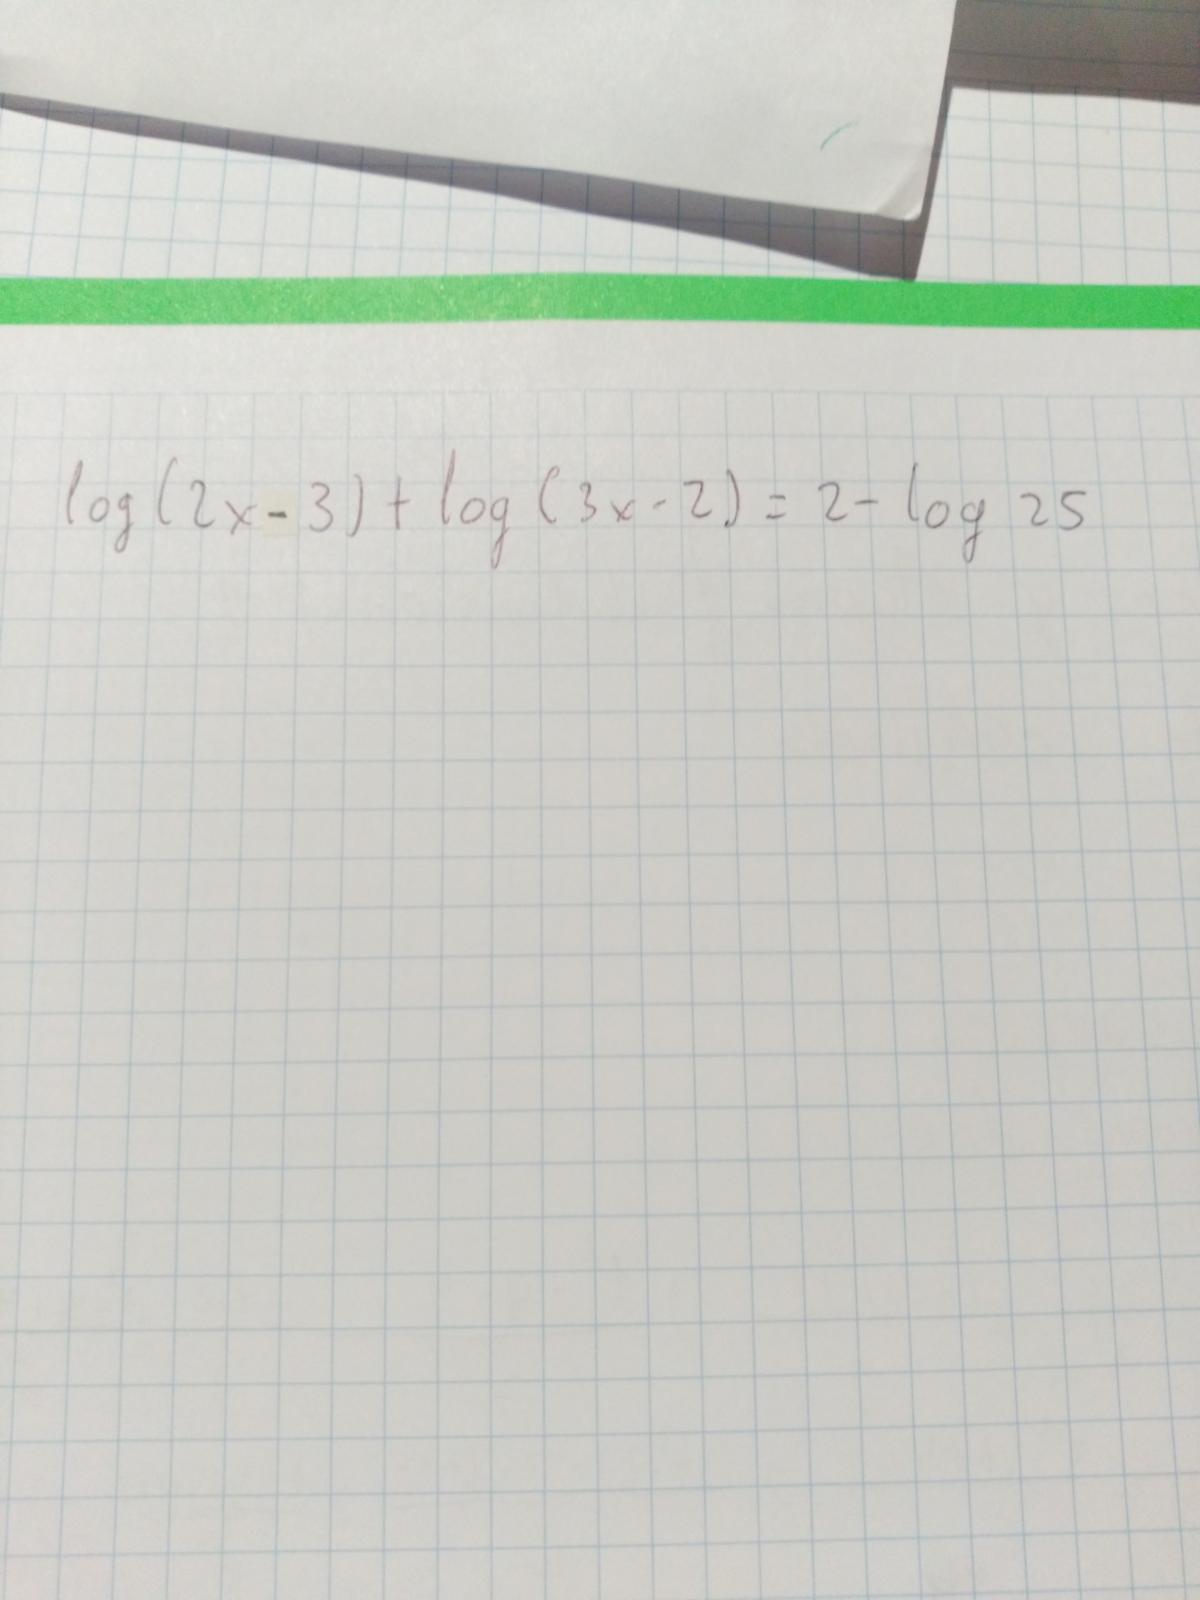 log(2x-3)+log(3x-2)=2-log 25